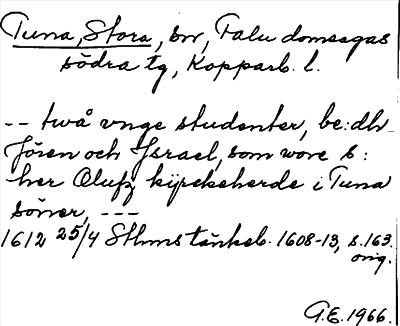 Tuna, Stora, sn, Falu domsagas
södra tg, Kopparb. l.
-- twå vnge studenter, be:dh
Jören och Israel, som wore s:
her Olufz kijrckeherde i Tuna
söner, ---
1612 25/4 Sthms tänkeb. 1608-13, s. 163.
orig.
G.E. 1966.